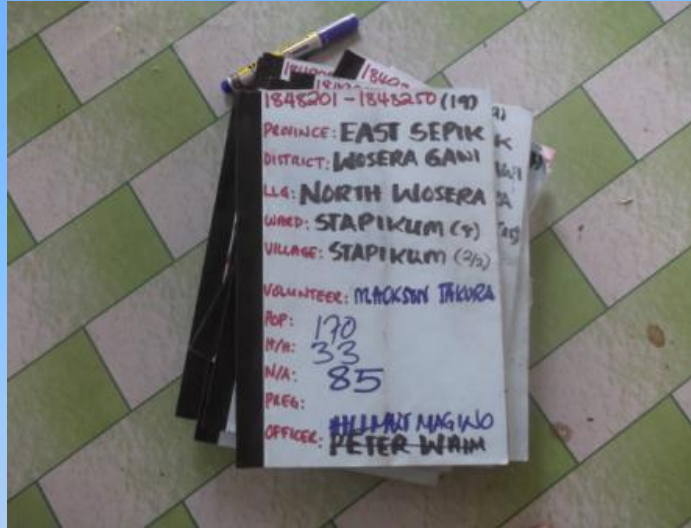 1848201-1848250 (19)
PROVINCE: EAST SEPIK
DISTRICT: WOSERA GAWI
LLG: NORTH WOSERA
WARD: STAPIKUM (8)
VILLAGE: STAPIKUM (2/2)
VOLUNTEER: MACKSON TAKURA
POP: 170
H/H: 33
N/A: 85
PREG:
MAGINO
OFFICER: PETER WAIM